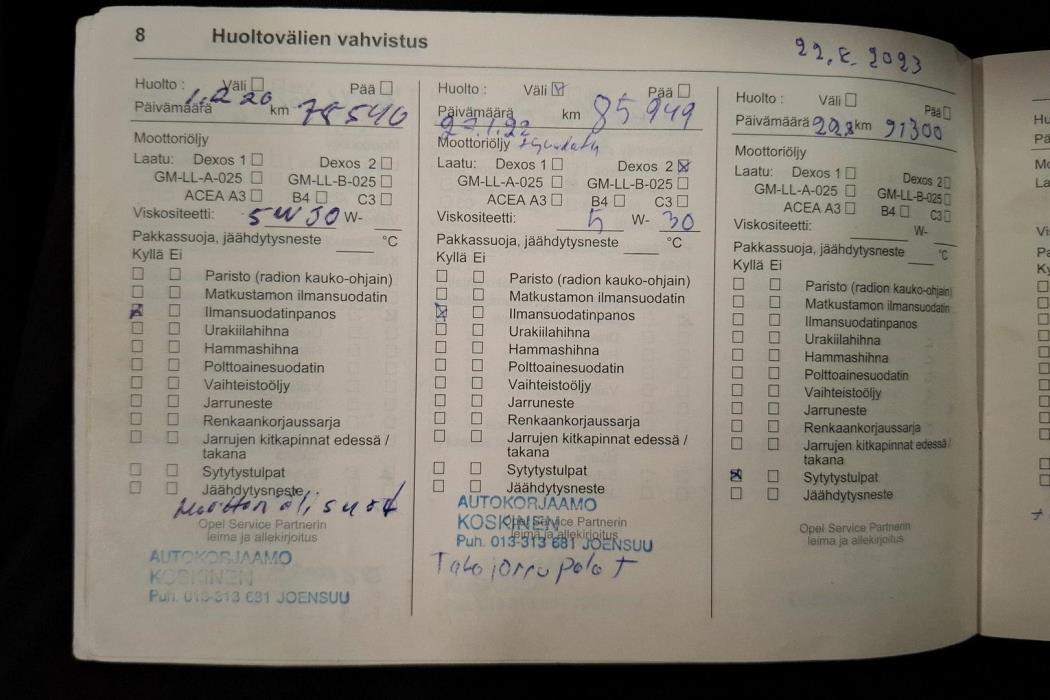 8 Huoltovälien vahvistus
22.8. 2023
Huolto : Väli Pää
Päivämäärä 1.2.20 km 78540
Moottoriöljy
Laatu: Dexos 1 Dexos 2
GM-LL-A-025 GM-LL-B-025
ACEA A3 B4 C3
Viskositeetti: 5W30 W-
Pakkassuoja, jäähdytysneste °C
Kyllä Ei
Paristo (radion kauko-ohjain)
Matkustamon ilmansuodatin
Ilmansuodatinpanos
Urakiilahihna
Hammashihna
Polttoainesuodatin
Vaihteistoöljy
Jarruneste
Renkaankorjaussarja
Jarrujen kitkapinnat edessä /
takana
Sytytystulpat
Jäähdytysneste
Opel Service Partnerin
leima ja allekirjoitus
AUTOKORJAAMO
KOSKINEN
Puh. 013-313 681 JOENSUU
Huolto : Väli Pää
Päivämäärä km 85 949
27.1.22
Moottoriöljy
Laatu: Dexos 1 Dexos 2
GM-LL-A-025 GM-LL-B-025
ACEA A3 B4 C3
Viskositeetti: 5 W- 30
Pakkassuoja, jäähdytysneste °C
Kyllä Ei
Paristo (radion kauko-ohjain)
Matkustamon ilmansuodatin
Ilmansuodatinpanos
Urakiilahihna
Hammashihna
Polttoainesuodatin
Vaihteistoöljy
Jarruneste
Renkaankorjaussarja
Jarrujen kitkapinnat edessä /
takana
Sytytystulpat
Jäähdytysneste
AUTOKORJAAMO
KOSKINEN
Opel Service Partnerin
leima ja allekirjoitus
Puh. 013-313 681 JOENSUU
Taka jarrupalat
Huolto : Väli Pää
Päivämäärä 22.8 km 91300
Moottoriöljy
Laatu: Dexos 1 Dexos 2
GM-LL-A-025 GM-LL-B-025
ACEA A3 B4 C3
Viskositeetti: W-
Pakkassuoja, jäähdytysneste °C
Kyllä Ei
Paristo (radion kauko-ohjain)
Matkustamon ilmansuodatin
Ilmansuodatinpanos
Urakiilahihna
Hammashihna
Polttoainesuodatin
Vaihteistoöljy
Jarruneste
Renkaankorjaussarja
Jarrujen kitkapinnat edessä /
takana
Sytytystulpat
Jäähdytysneste
Opel Service Partnerin
leima ja allekirjoitus